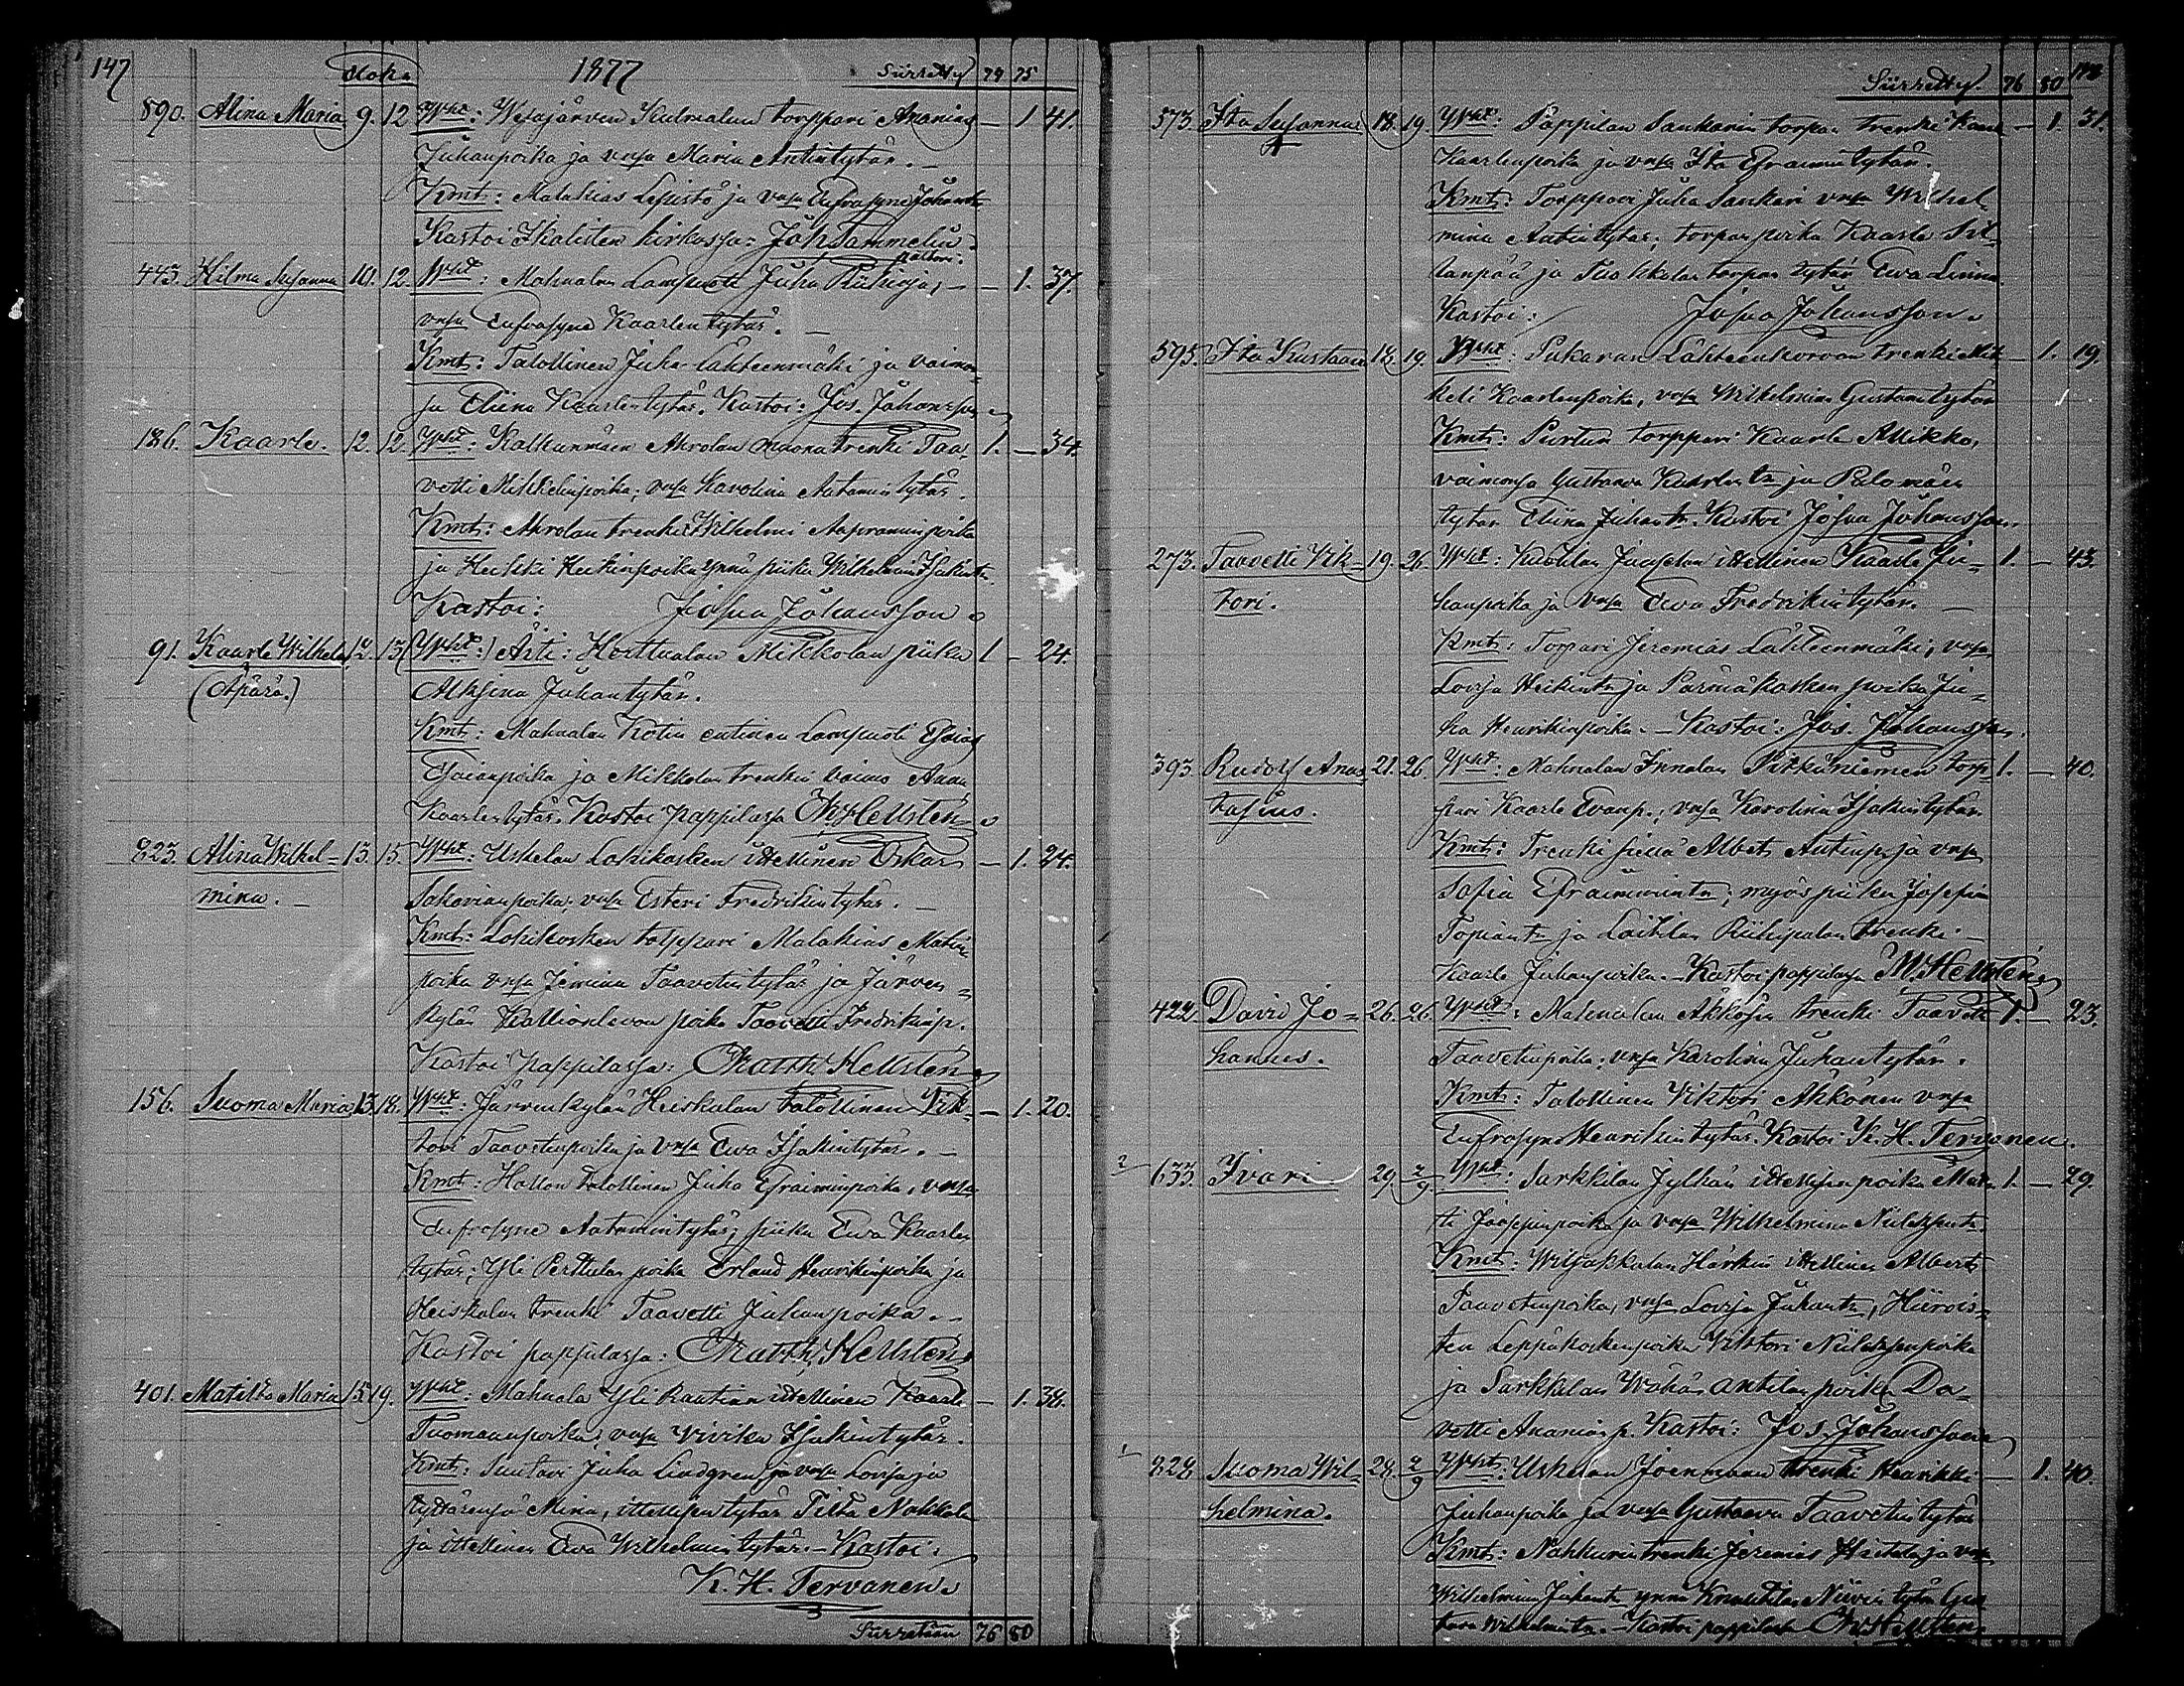 147 Eloku 1877 Siirretty 74 75
890. Alina Maria 9. 12 Wht: Wesajärven Kulmalan torppari Ananias — 1 41.
Juhanpoika ja vnsa Maria Antintytär. —
Kmt: Malakias Lepistö ja vnsa Eufrosyne Juhantr
Kastoi Ikalisten kirkossa: Joh Sammelin
pastori.
443. Hilma Susanna 10. 12. Wht: Mahnalan Lampuoti Juha Riihioja, — — 1. 37.
vnsa Eufrosyne Kaarlentytär. —
Kmt: Talollinen Juha Lähteenmäki ja vaimon-
sa Eliina Kaarlentytär. Kastoi: Jos. Johansson
186. Kaarle. 12. 12. Wht: Kalkunmäen Ahrolan muona trenki Taa- 1. — 34.
vetti Mikkelinpoika; vnsa Karolina Aatamintytär.
Kmt: Ahrolan trenki Wilhelmi Aapraminpoika
ja Heikki Heikinpoika ynnä piika Wilhelmina Isakintr.
Kastoi: Josua Johansson
91. Kaarle Wilhelm 12. 13 (Wht:) Äiti: Herttualan Mikkolan piika 1 — 24.
(Äpärä.) Alksina Juhantytär.
Kmt: Mahnalan Kotin entinen Lampuoti Esaias
Esaianpoika ja Mikkolan trenkin vaimo Anna
Kaarlentytär. Kastoi pappilassa M Hellsten
823. Alina Wilhel- 13. 15. Wht: Uskelan Lokikosken itsellinen Oskar — 1. 24.
mina. — Sakarianpoika, vnsa Esteri Fredrikintytär. —
Kmt: Lokikosken torppari Malakias Matin
poika vnsa Jemina Taavetintytär ja Järven-
kylän Kallionlevon poika Taavetti Fredrikinp.
Kastoi pappilassa: Matth Hellsten
156. Suoma Maria 13. 18. Wht: Järvenkylän Heiskalan talollinen Vik- — 1. 20.
tori Taavetinpoika ja vnsa Ewa Isakintytär. —
Kmt: Hallon talollinen Juha Efraiminpoika, vnsa
Eufrosyne Aatamintytär; piika Ewa Kaarlen
tytär; Yli Perttulan poika Erland Henrikinpoika ja
Heiskalan trenki Taavetti Juhanpoika. —
Kastoi pappilassa: Matth, Hellsten
401. Matilta Maria 15. 19. Wht: Mahnala Yli Rautian itsellinen Kaarle — 1. 38.
Tuomaanpoika; vnsa Wivika Isakintytär.
Kmt: Suutari Juha Lindgren ja vnsa Lovisa ja
tyttärensä Mina, itsellisen tytär Tilta Nahkala
ja itsellinen Ewa Wilhelmintytär. — Kastoi:
K. H. Tervanen.
Siirretään 76 80
Siirretty. 76 80 148
573. Ita Susanna 18. 19. Wht: Pappilan Sankarin torpan trenki Kaarle — 1. 31.
Kaarlenpoika ja vnsa Ita Efraimintytär.
Kmt: Torppari Juha Sankari vnsa Wilhel-
mina Antintytär; torpan poika Kaarle Sil-
tanpää ja Tuokkolan torpan tytär Ewa Liina
Kastoi: Josua Johansson.
595. Ita Kustaava 18. 19. Wht: Pukaran Lähteenkorvan trenki Mik- — 1. 19.
keli Kaarlenpoika, vnsa Wilhelmina Gustavintytär
Kmt: Purtun torppari Kaarle Mikko,
vaimonsa Gustaava Kaarlentr ja Palomäen
tytär Eliina Juhantr. Kastoi Josua Johansson.
273. Taavetti Vik- 19. 26. Wht: Kuotilan Juuselan itsellinen Kaarle Ju- 1. — 43.
tori. hanpoika ja vnsa Ewa Fredrikintytär. —
Kmt: Torpari Jeremias Lähteenmäki, vnsa
Lovisa Heikintr ja Parmäkosken poika Ju-
ha Henrikinpoika. — Kastoi: Jos. Johansson.
393. Rudolf Anas- 21. 26. Wht: Mahnalan Innalan Pitkäniemen torp- 1. — 40.
tasius. pari Kaarle Evanp.; vnsa Karolina Isakintytär
Kmt: Trenki siellä Albert Antinp. ja vnsa
Sofia Efraimintr; myös piika Josefina
Topiantr ja Laitilan Riihipalan trenki —
Kaarle Juhanpoika. — Kastoi pappilassa M. Hellsten
422. David Jo- 26. 26. Wht: Mahnalan Äkkösen trenki Taavetti 1. — 23.
hannes. Taavetinpoika; vnsa Karolina Juhantytär.
Kmt: Talollinen Viktori Äkkönen vnsa
Eufrosyne Henrikintytär. Kastoi K. H. Tervanen.
2 633. Ivari 29. 2/9. Wht: Sarkkilan Jylhän itsellisen poika Mar- 1. — 29.
ti Jooseppinpoika ja vnsa Wilhelmina Niilessentr
Kmt: Wiljakkalan Härkin itsellinen Albert
Taavetinpoika, vnsa Lovisa Juhantr, Hiirois-
ten Leppäkosken poika Viktori Niilessenpoika
ja Sarkkilan Wähä Antilan poika Da-
vetti Ananianp. Kastoi: Jos. Johansson
1 828. Suoma Wil- 28. 2/9 Wht: Uskelan Joenmaan trenki Henrikki — 1. 40.
helmina. Juhanpoika ja vnsa Gustaava Taavetintytär
Kmt: Nahkurin trenki Jeremias Hietala ja vnsa
Wilhelmina Juhantr ynnä Knuutila Niivin tytär Gus
tava Wilhelmintr. — Kastoi pappilassa M Hellsten.